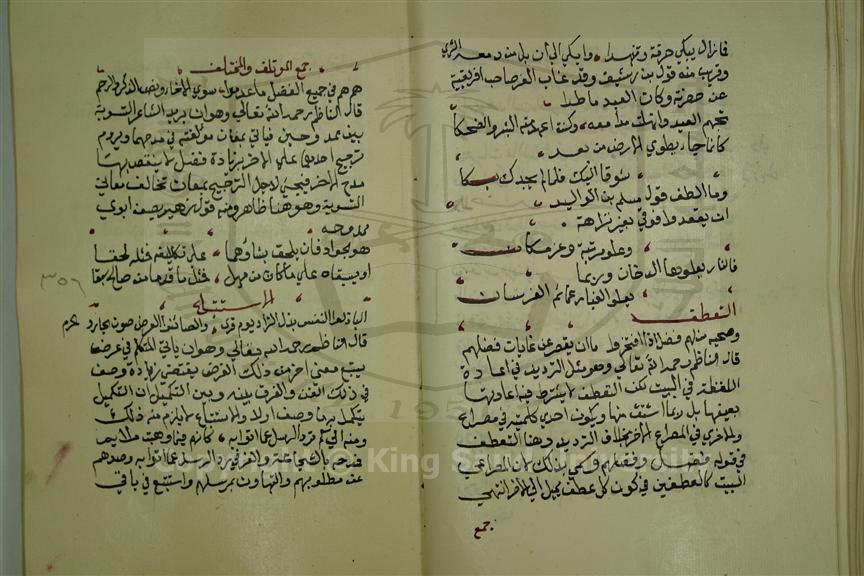 فما زال يبكي حرقة وتنهدا وابكي الى ان بل من دمعه الثرى
وقريب منه قول بن رشيق وقد غاب المعز صاحب افريقية
عن حضرته وكان العيد ماطرا
تجهم العيد وانهلت مدامعه وكنت اعهد منه البشر والضحكا
كانما جاء يطوي الارض من بعد
شوقا اليك فلما لم يجدك بكا
وما الطف قول مسلم بن الوليد
وعلو مرتبة وعز مكان
فالنار يعلوها الدخان وربما
يعلو الغبار عمائم الفرسان
التعطف
وصحبه من لهم فضل اذا افتخروا ما ان يقصر عن غايات فضلهم
قال الناظم رحمه الله تعالى وهو مثل الترديد في اعادة
اللفظة في البيت لكن التعطف لا يشترط فيه اعادتها
بعينها بل بما اشتق منها ويكون احدى كلمتيه في مصراع
والاخرى في المصراع الاخر بخلاف الترديد وهنا التعطف
في قوله فضل وفضلهم وسمي بذلك لان المصراعين في
البيت كالعطفين في كون كل عطف يميل الى الاخر انتهى
جمع
جمع المؤتلف والمختلف
هم هم في جميع الفضل ما عدموا سوى الاخاء ونص الذكر والرحم
قال الناظم رحمه الله تعالى وهو ان يريد الشاعر التسوية
بين ممدوحين فياتي بمعان مؤتلفة في مدحهما ويروم
ترجيح احدهما على الاخر بزيادة فضل لا ينتقص بها
مدح الاخر فيجيء لاجل الترجيح بمعان تخالف معاني
التسوية وهو هنا ظاهر ومنه قول زهير يصف ابوي
ممدوحه
هو الجواد فان يلحق بشاوهما على تكاليفه فمثله لحقا
او يسبقاه على ما كان من مهل فمثل ما قدما من صالح سبقا
٣٥٦
الاستتباع
الباذلوا النفس بذل الزاد يوم قرى والصائنوا العرض صون الجار والحرم
قال الناظم رحمه الله تعالى وهو ان ياتي المتكلم في غرض
يتبع معنى اخر من ذلك الغرض يقتضي زيادة وصف
في ذلك الفن والفرق بينه وبين التكميل ان التكميل
يكمل به ما وصف اولا والاستتباع لا يلزم منه ذلك
عن مطلوبهم والتهاون بمرسلهم واستتبع في باقي